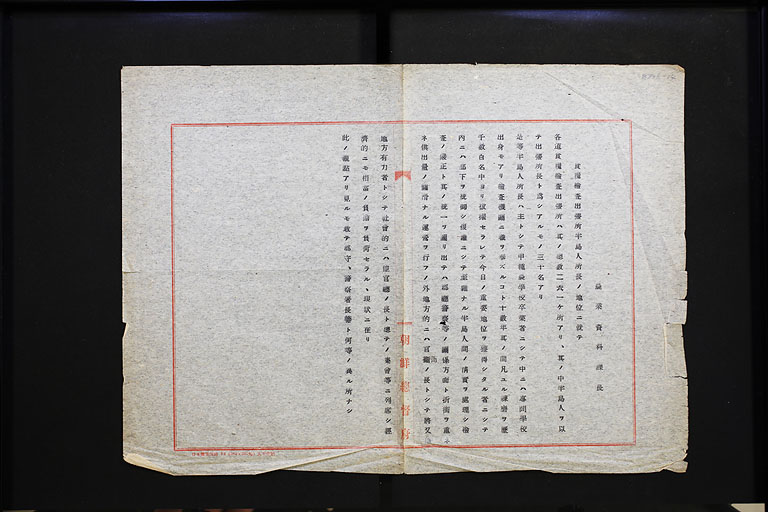 穀檢查出張所半島人所長ノ地位ニ就テ
農業資料課長
各道穀檢查出張所ハ其ノ總數二六一ケ所アリ、其ノ中半島人ヲ以
テ出張所長ト為シアルモノ三十名アリ
是等半島人所長ハ主トシテ甲種農學校卒業者ニシテ中ニハ專門學校
出身モアリ檢查機關ニ職ヲ奉ズルコト十數年其ノ間凡ユル練磨ヲ歷
千數百名中ヨリ拔擢セラレテ今日ノ重要地位ヲ獲得シタル者ニシテ
內ニハ部下ヲ統御シ外ニシテ至難ナル半島人間ノ情實ヲ處理シ檢
查ノ嚴正ト其ノ統一ヲ圖リ出テハ等ノ關係方面ト折衝ヲ重ネ
供出量ノ圓滑ナル運營ヲ行フノ外地方的ニハ官廳ノ長トシテ將又
地方有力者トシテ社會的ニハ官廳ノ長ト總テノ集會等ニ列席シ經
濟的ニモ相當ノ負擔ヲ負荷セラルヽ現狀ニ在リ
此ノ觀點アリ見ルモ敢テ郡守、警察署長等ト何等ノ異ル所ナシ
朝鮮總督府